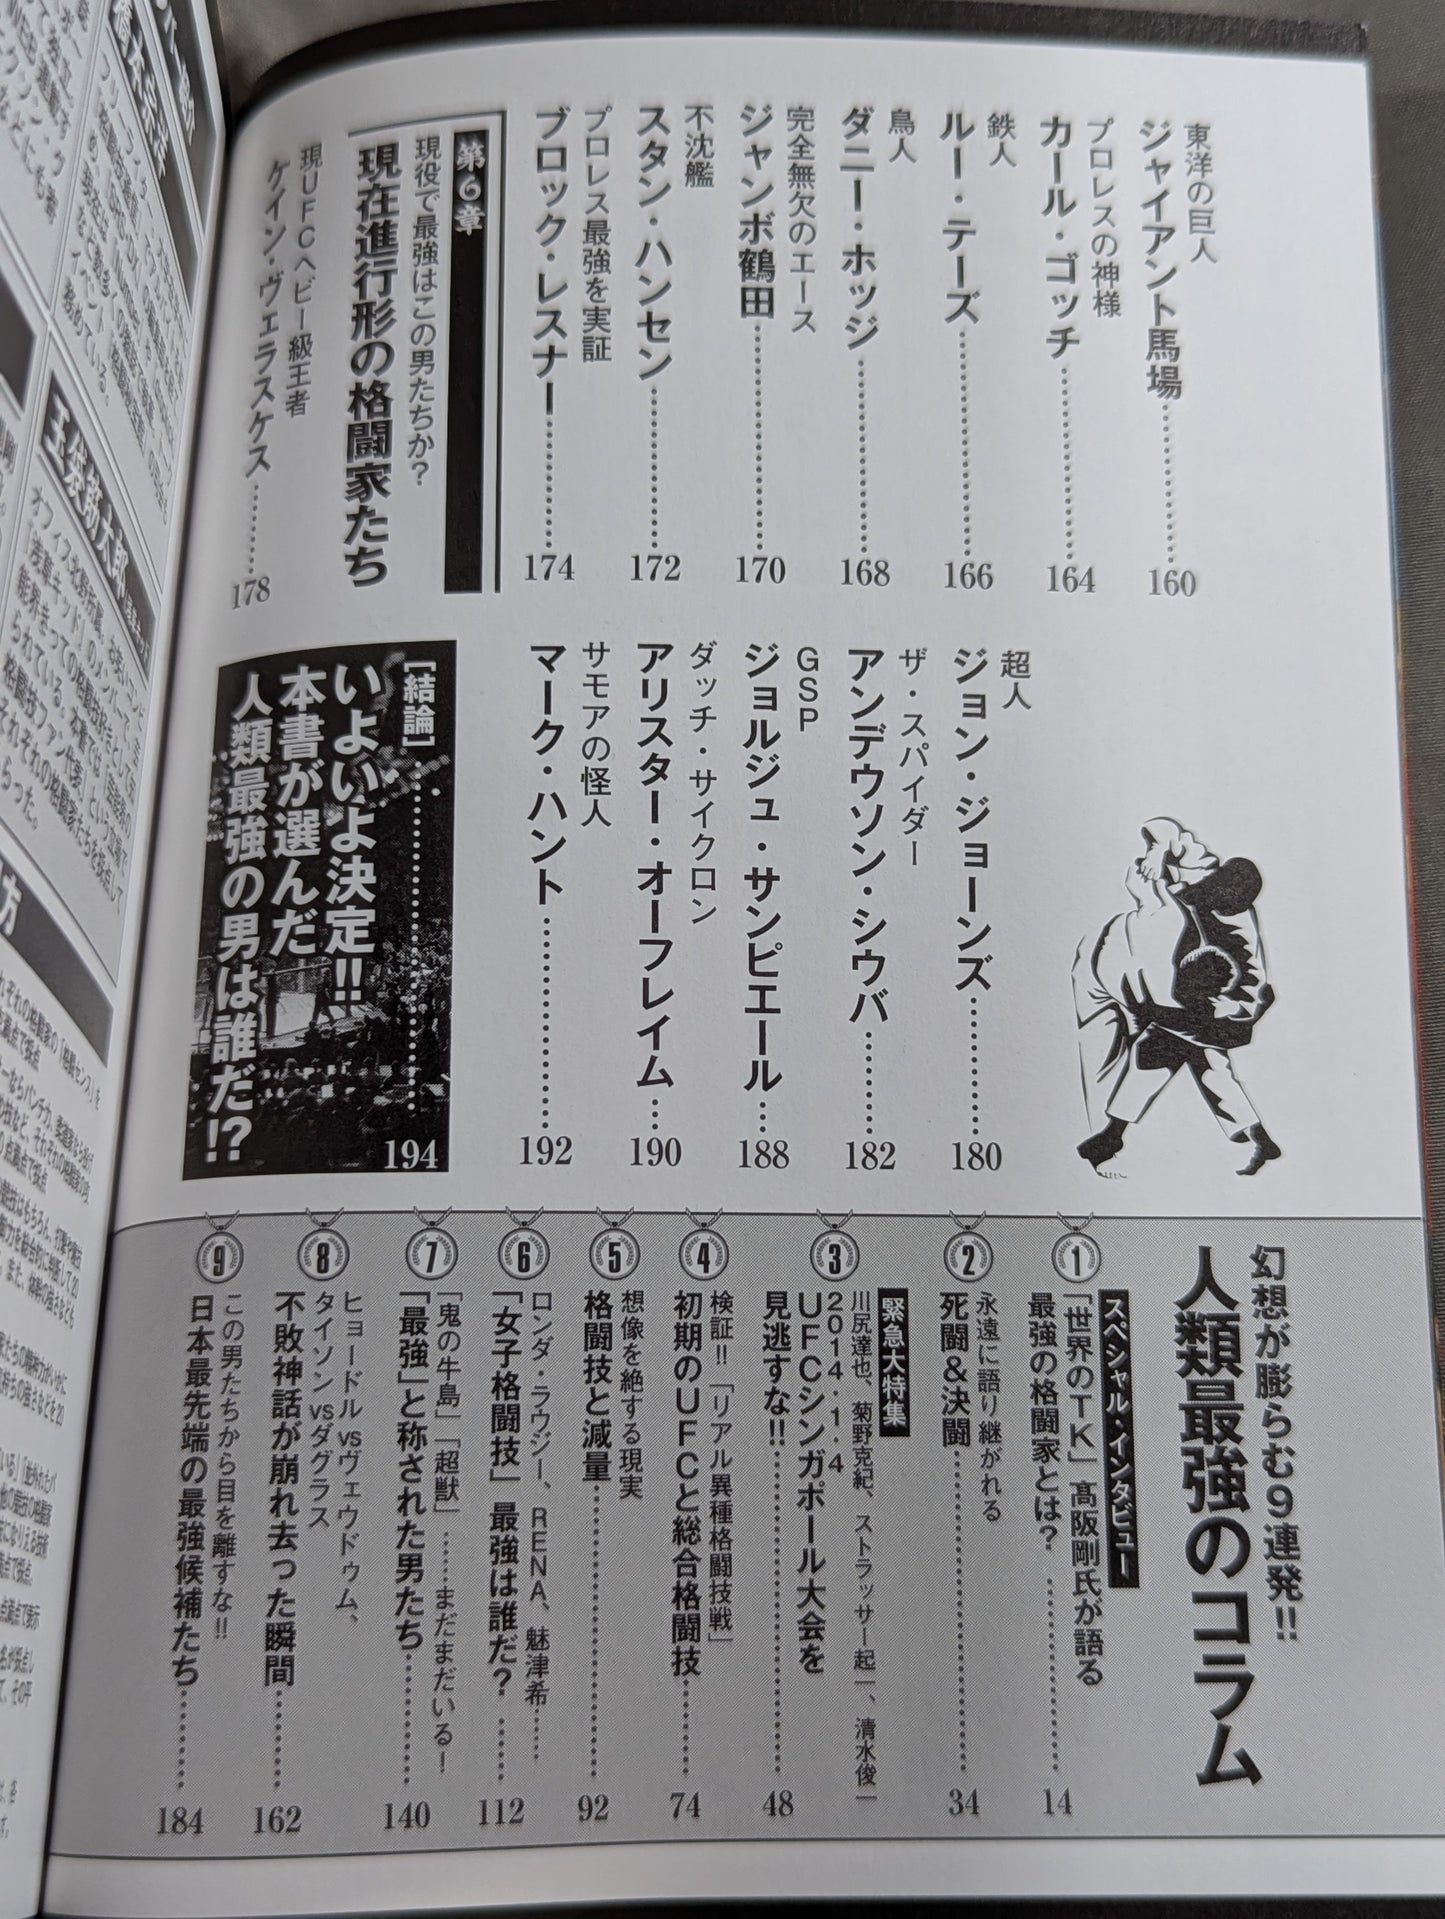 東洋の巨人
ジャイアント馬場……160
プロレスの神様
カール・ゴッチ……164
鉄人
ルー・テーズ……166
鳥人
ダニー・ホッジ……168
完全無欠のエース
ジャンボ鶴田……170
不沈艦
スタン・ハンセン……172
プロレス最強を実証
ブロック・レスナー……174
第6章
現役で最強はこの男たちか?
現在進行形の格闘家たち
現UFCヘビー級王者
ケイン・ヴェラスケス……178
超人
ジョン・ジョーンズ……180
ザ・スパイダー
アンデウソン・シウバ……182
GSP
ジョルジュ・サンピエール……188
ダッチ・サイクロン
アリスター・オーフレイム……190
サモアの怪人
マーク・ハント……192
[結論]……194
いよいよ決定!!
本書が選んだ
人類最強の男は誰だ!?
幻想が膨らむ9連発!!
人類最強のコラム
1
スペシャル・インタビュー
「世界のTK」髙阪剛氏が語る
最強の格闘家とは?……14
2
永遠に語り継がれる
死闘&決闘……34
3
緊急大特集
川尻達也、菊野克紀、ストラッサー起一、清水俊一
2014・1・4
UFCシンガポール大会を
見逃すな!!……48
4
検証!!「リアル異種格闘技戦」
初期のUFCと総合格闘技……74
5
想像を絶する現実
格闘技と減量……92
6
ロンダ・ラウジー、RENA、魅津希……
「女子格闘技」最強は誰だ?……112
7
「鬼の牛島」「超獣」……まだまだいる!
「最強」と称された男たち……140
8
ヒョードルvsヴェウドゥム、
タイソンvsダグラス
不敗神話が崩れ去った瞬間……162
9
この男たちから目を離すな!!
日本最先端の最強候補たち……184
玉袋筋太郎